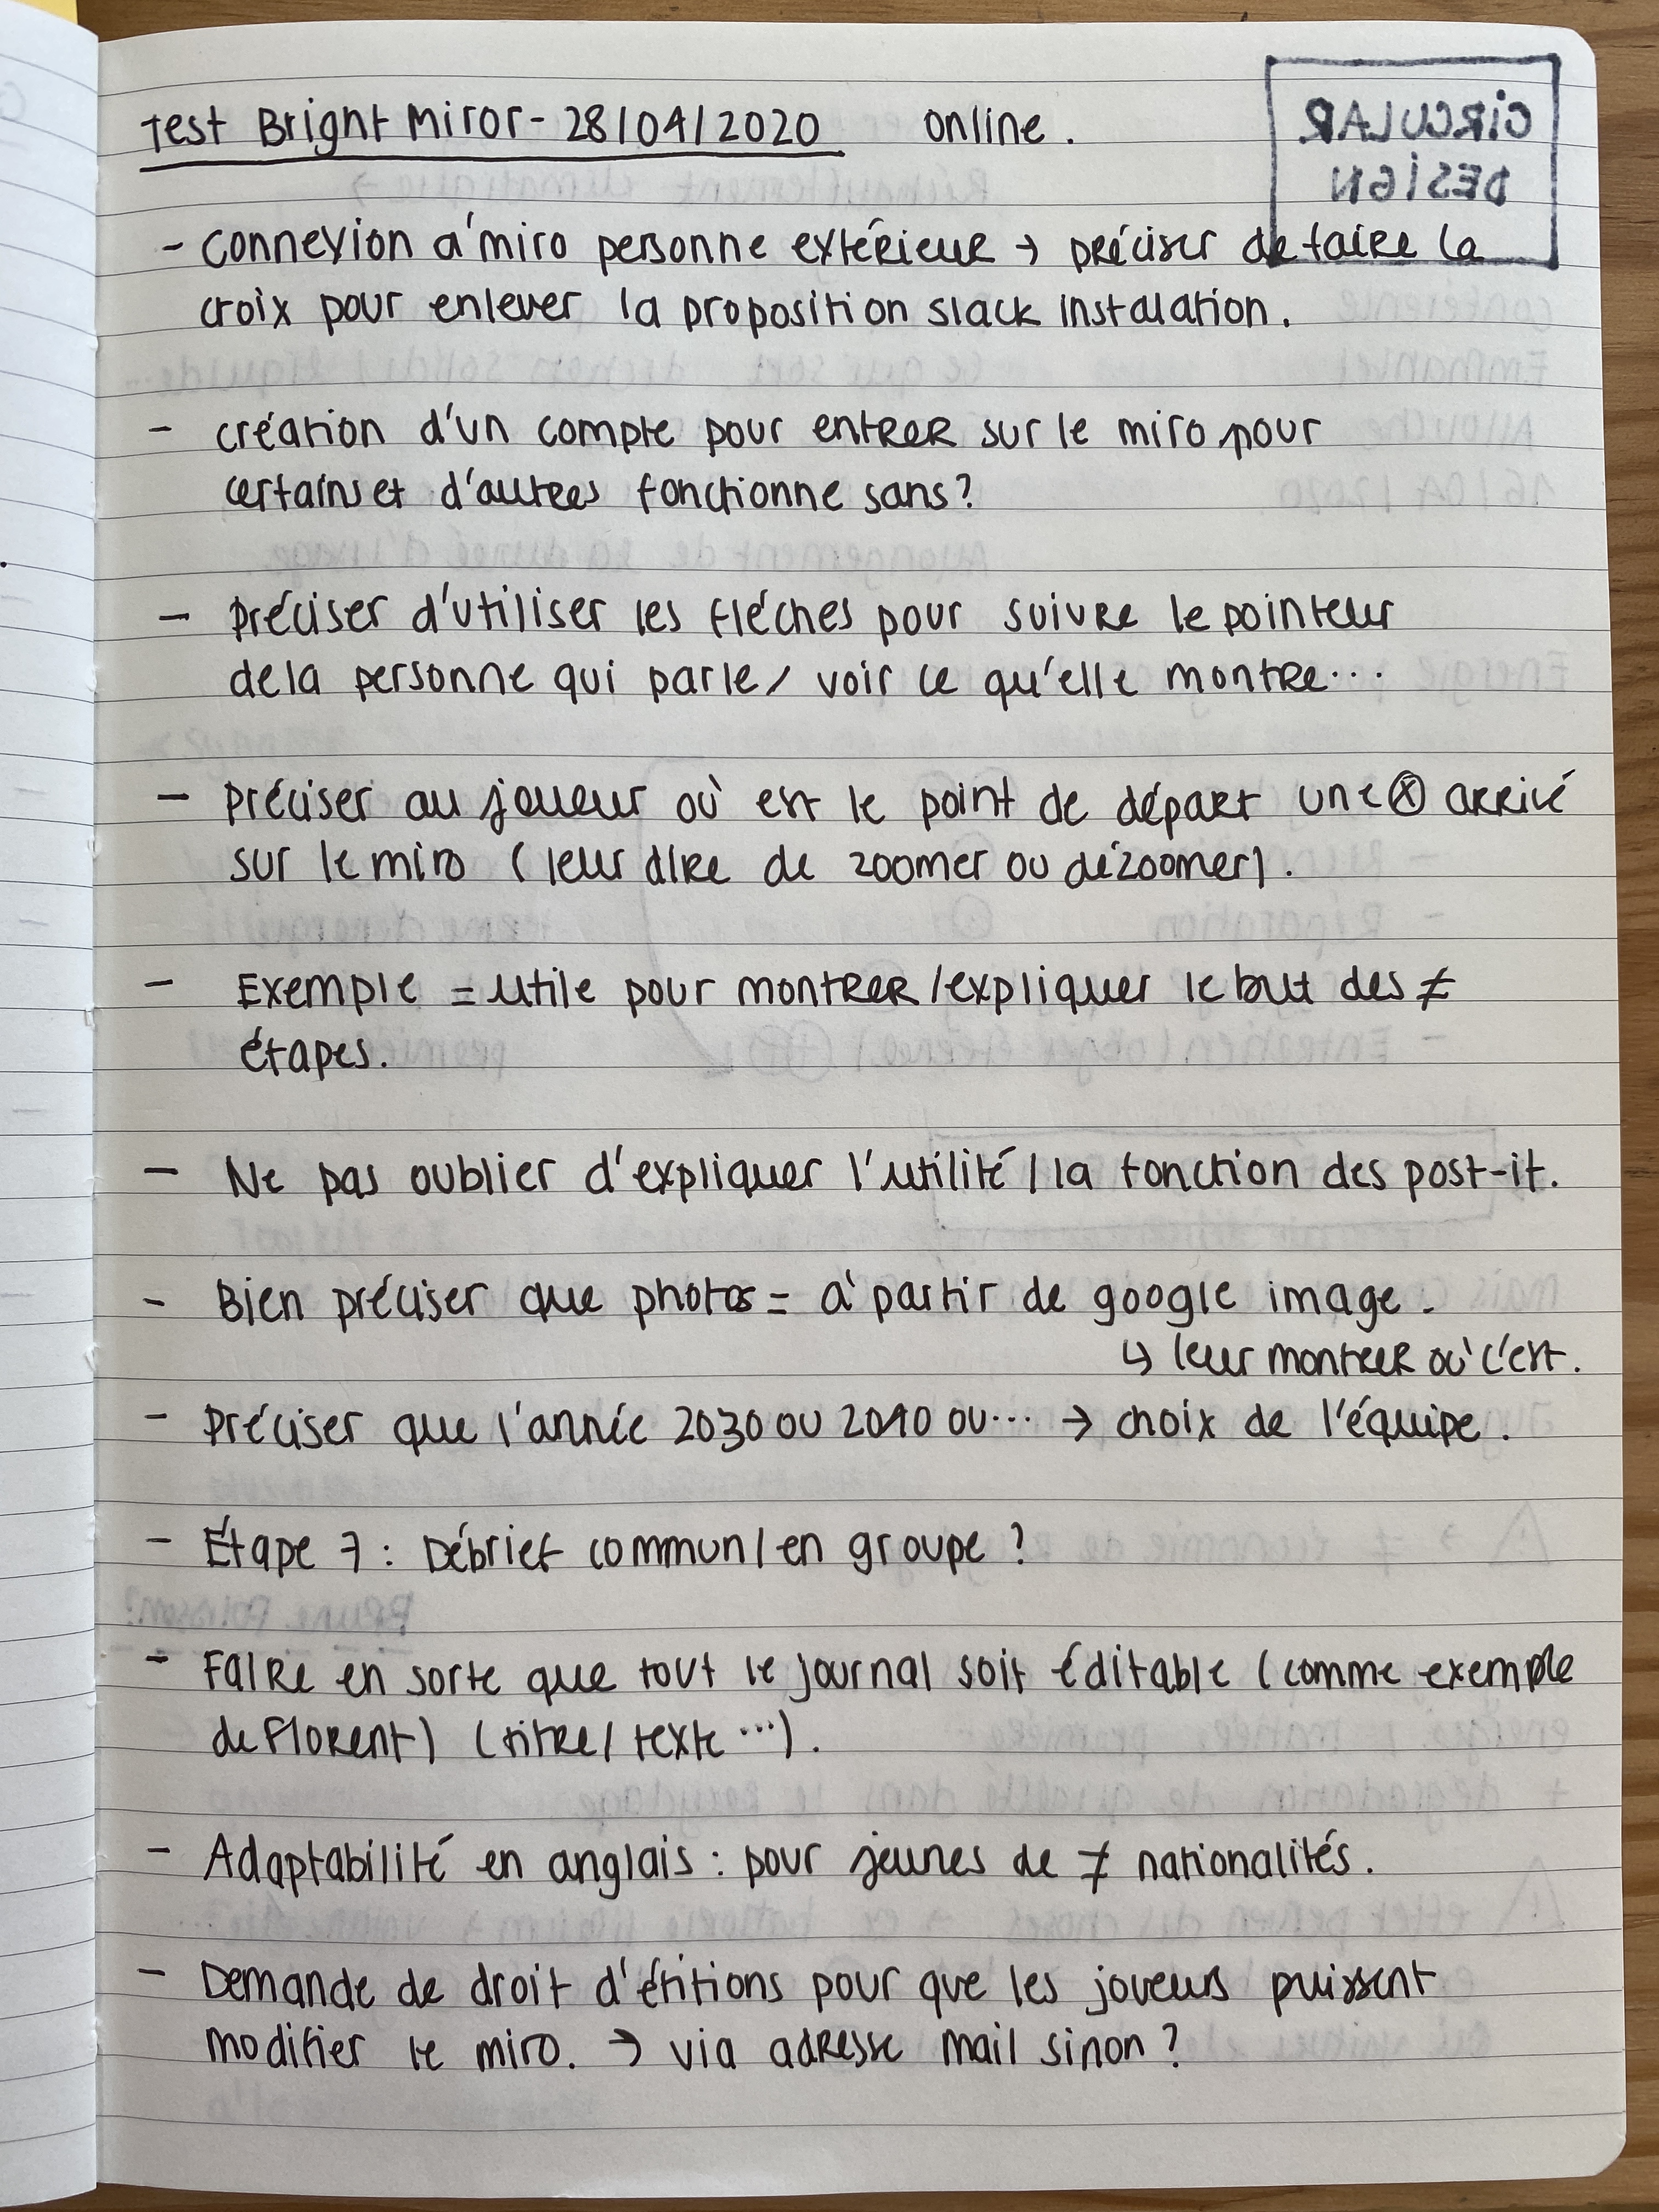 Test Bright Miror - 28/04/2020 online.
CIRCULAR
DESIGN
- connexion à miro personne extérieur → préciser de faire la
croix pour enlever la proposition slack instalation.
- création d'un compte pour entrer sur le miro pour
certains et d'autres fonctionne sans ?
- Préciser d'utiliser les fléches pour suivre le pointeur
de la personne qui parle / voir ce qu'elle montre...
- Préciser au joueur où est le point de départ une ⓧ arrivé
sur le miro (leur dire de zoomer ou dézoomer).
- Exemple = utile pour montrer / expliquer le but des ≠
étapes.
- Ne pas oublier d'expliquer l'utilité / la fonction des post-it.
- Bien préciser que photos = à partir de google image.
↳ leur montrer où c'est.
- Préciser que l'année 2030 ou 2040 ou... → choix de l'équipe.
- Étape 7 : Débrief commun / en groupe ?
- Faire en sorte que tout le journal soit éditable (comme exemple
de Florent) (titre / texte ...).
- Adaptabilité en anglais : pour jeunes de ≠ nationalités.
- Demande de droit d'éditions pour que les joueurs puissent
modifier le miro. → via adresse mail sinon ?